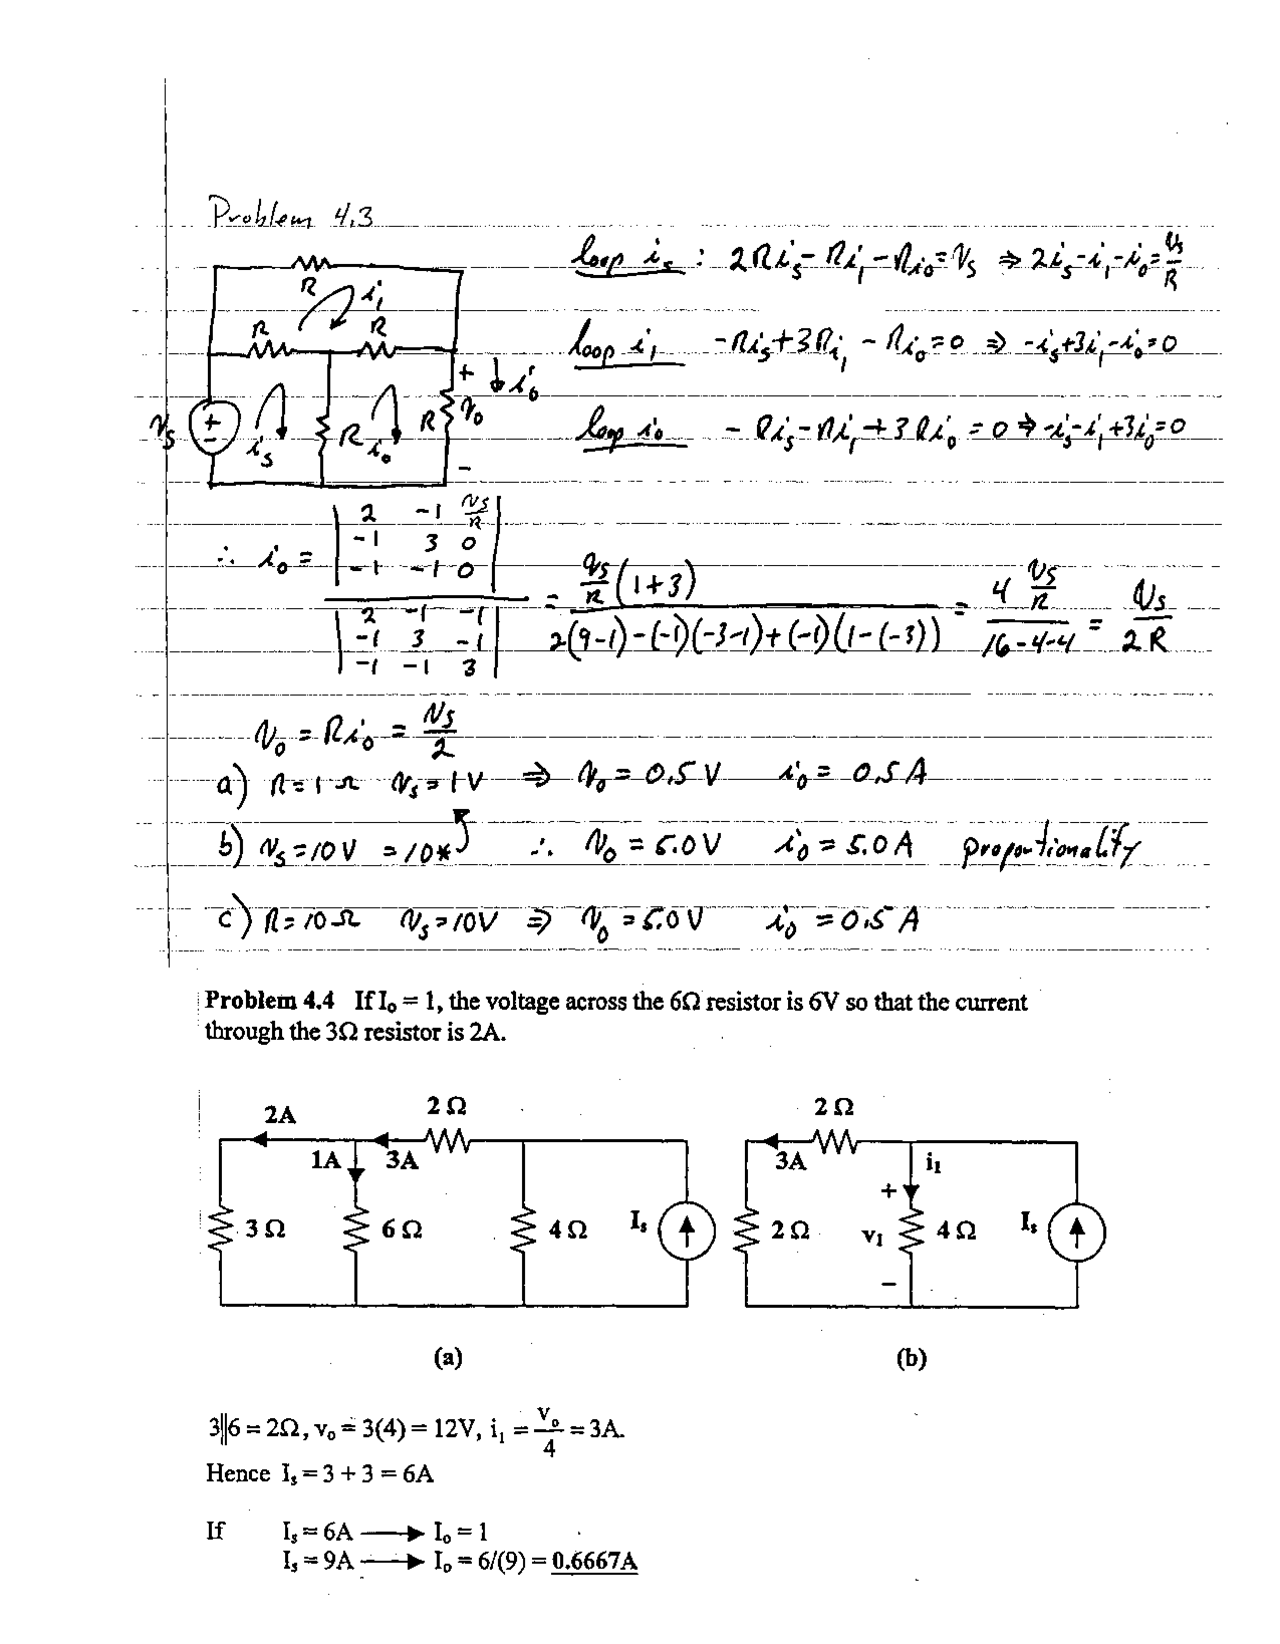 Problem 4.3
loop is : 2Ris - Ri1 - Rio = Vs ⇒ 2is - i1 - io = Vs/R
R
i1
R R
loop i1 -Ris + 3Ri1 - Rio = 0 ⇒ -is + 3i1 - io = 0
+ io
Vs + - is R io R vo
loop io -Ris - Ri1 + 3Rio = 0 ⇒ -is - i1 + 3io = 0
-
2 -1 Vs/R
-1 3 0
∴ io = -1 -1 0
2 -1 -1
-1 3 -1
-1 -1 3
= Vs/R (1+3) / 2(9-1)-(-1)(-3-1)+(-1)(1-(-3)) = 4 Vs/R / 16-4-4 = Vs/2R
Vo = Rio = Vs/2
a) R = 1 Ω Vs = 1 V ⇒ Vo = 0.5 V io = 0.5 A
b) Vs = 10 V = 10* ∴ Vo = 5.0 V io = 5.0 A proportionality
c) R = 10 Ω Vs = 10V ⇒ Vo = 5.0 V io = 0.5 A
Problem 4.4 If Io = 1, the voltage across the 6Ω resistor is 6V so that the current
through the 3Ω resistor is 2A.
2A 2 Ω 2 Ω
1A 3A 3A i1
+
3 Ω 6 Ω 4 Ω Is 2 Ω v1 4 Ω Is
-
(a) (b)
3||6 = 2Ω, vo = 3(4) = 12V, i1 = vo/4 = 3A.
Hence Is = 3 + 3 = 6A
If Is = 6A → Io = 1
Is = 9A → Io = 6/(9) = 0.6667A